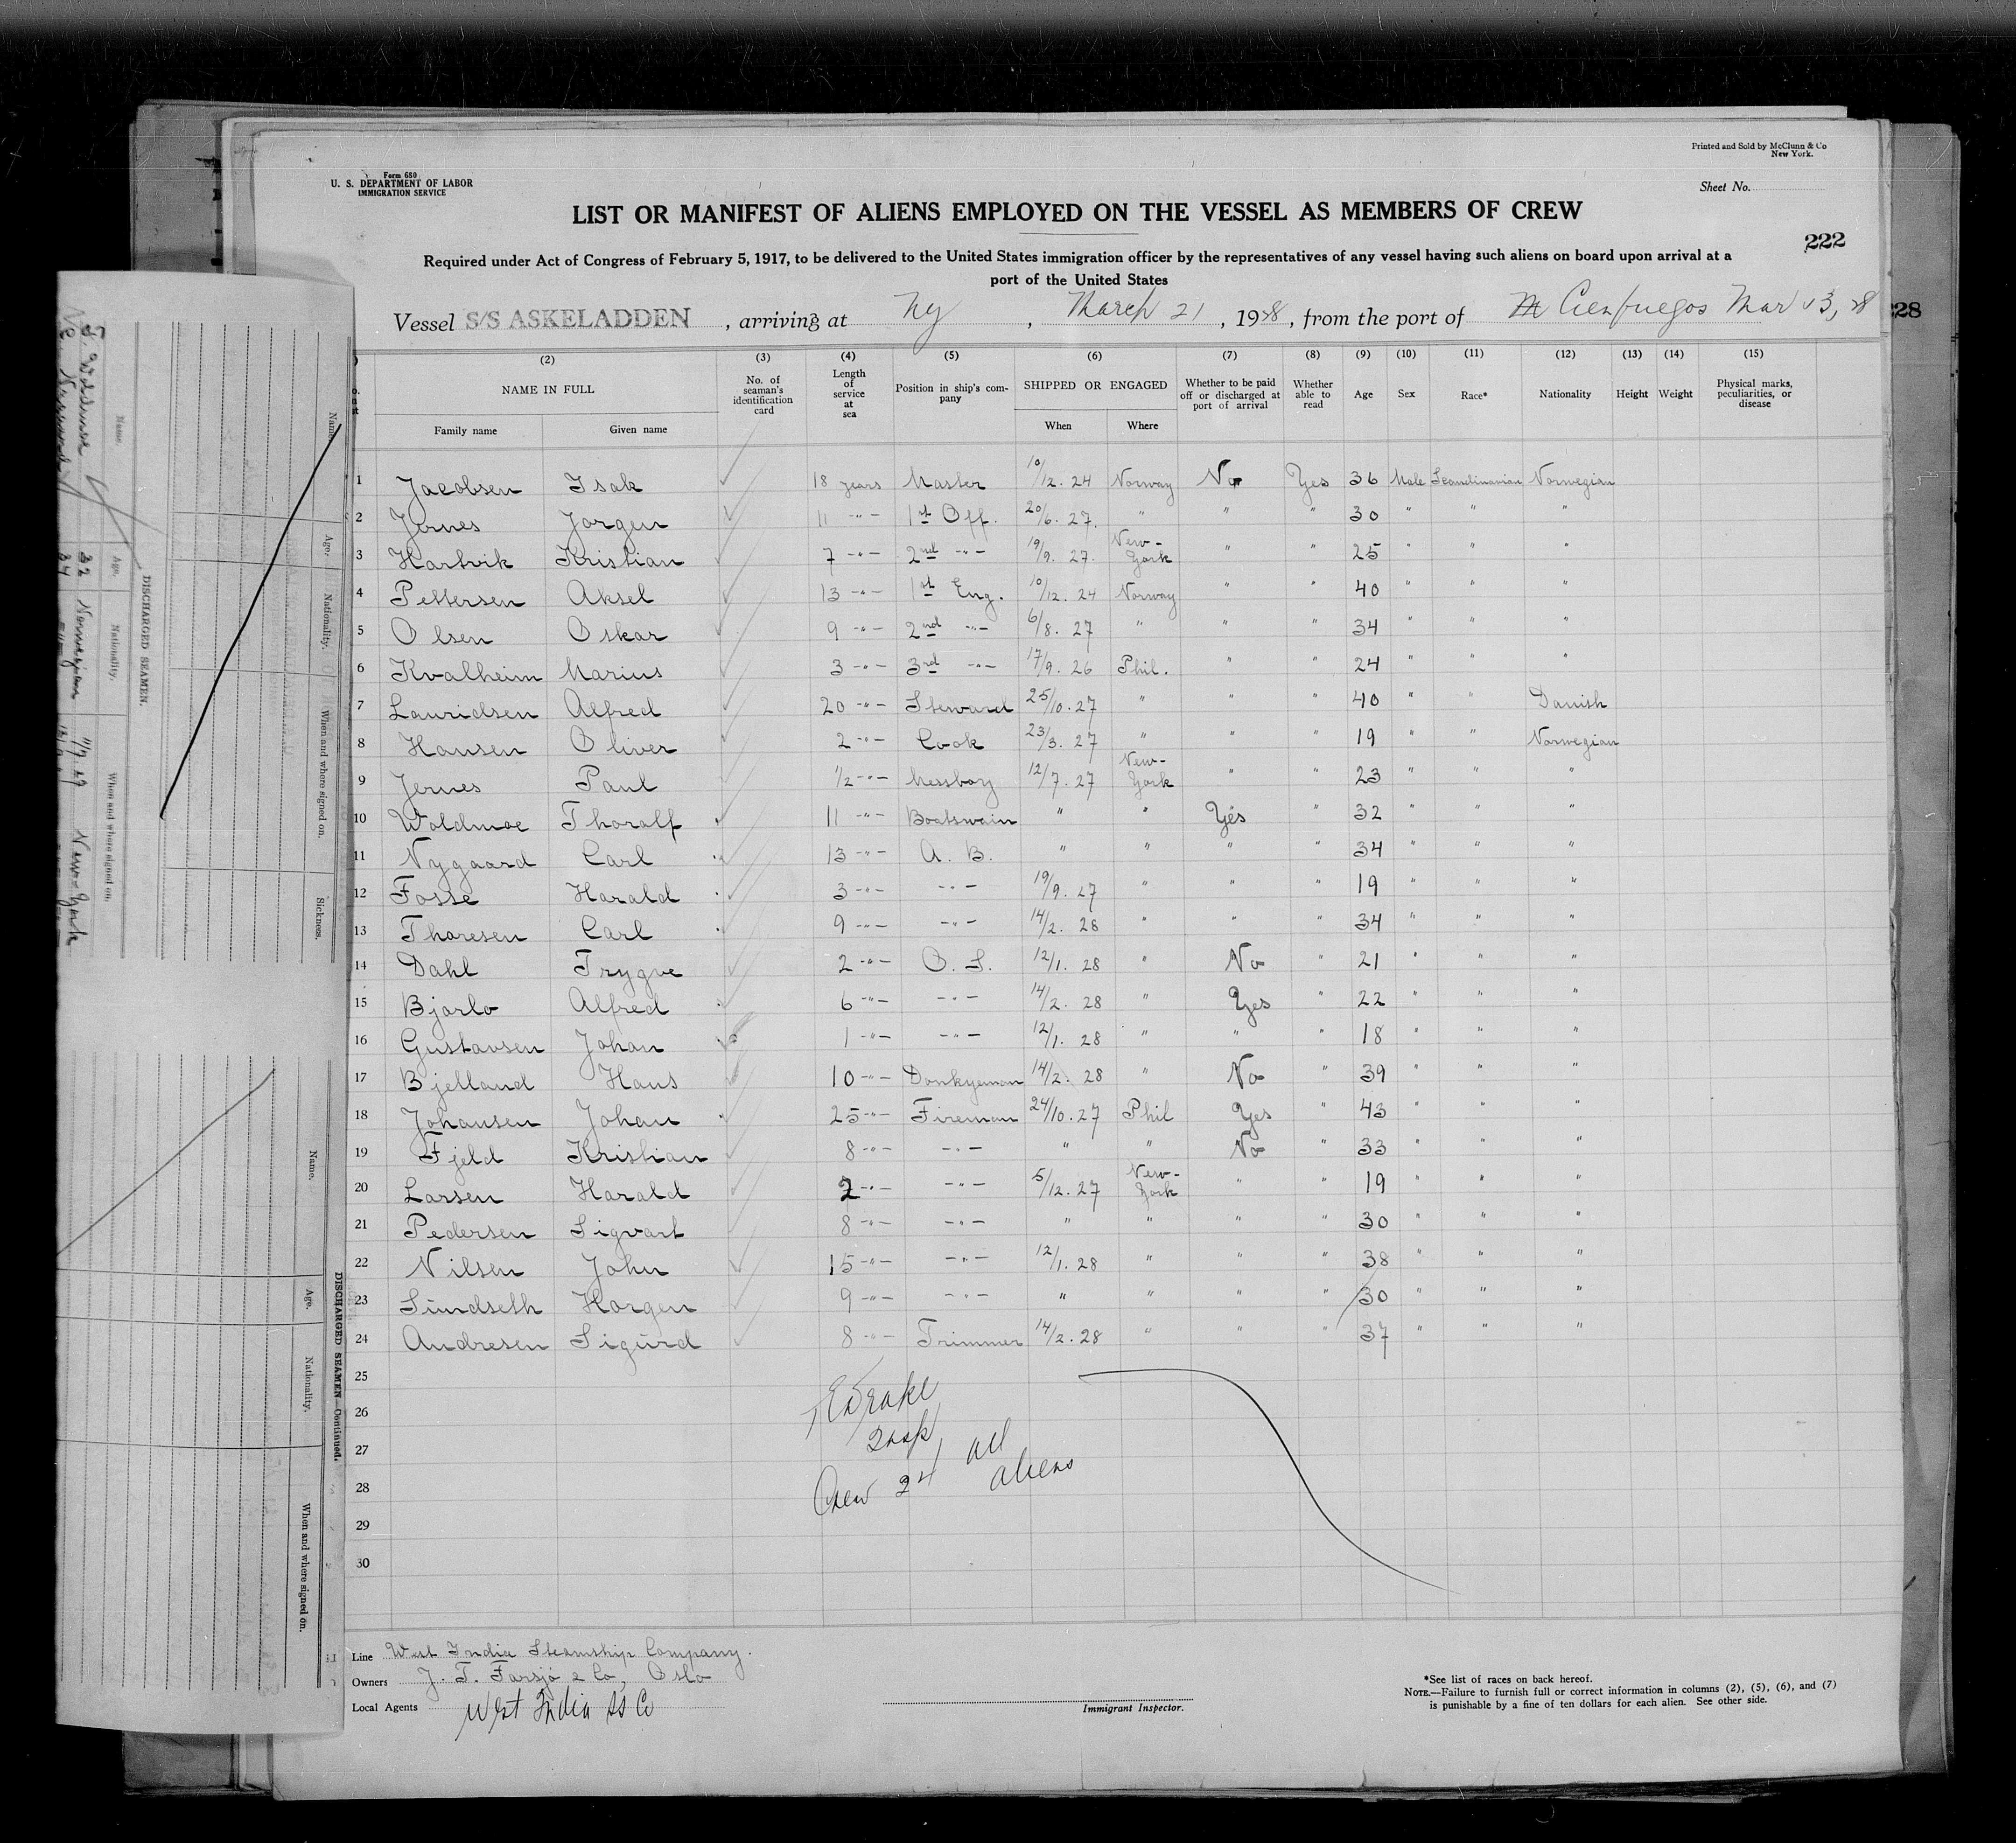 Printed and Sold by McClunn & Co
New York.
Form 680
U. S. DEPARTMENT OF LABOR
IMMIGRATION SERVICE
Sheet No.
LIST OR MANIFEST OF ALIENS EMPLOYED ON THE VESSEL AS MEMBERS OF CREW
222
Required under Act of Congress of February 5, 1917, to be delivered to the United States immigration officer by the representatives of any vessel having such aliens on board upon arrival at a
port of the United States
Vessel S/S ASKELADDEN, arriving at Ny, March 21, 1928, from the port of Cienfuegos Mar 13, 28
228
(2) (3) (4) (5) (6) (7) (8) (9) (10) (11) (12) (13) (14) (15)
NAME IN FULL No. of seaman's identification card Length of service at sea Position in ship's company SHIPPED OR ENGAGED Whether to be paid off or discharged at port of arrival Whether able to read Age Sex Race* Nationality Height Weight Physical marks, peculiarities, or disease
Family name Given name When Where
1 Jacobsen Isak 18 years Master 10/12. 24 Norway No Yes 36 Male Scandinavian Norwegian
2 Jernes Jorgen 11 -"- 1st Off. 20/6. 27. " " " 30 " " "
3 Hartvik Kristian 7 -"- 2nd -"- 19/9. 27. New-York " " 25 " " "
4 Pettersen Aksel 13 -"- 1st Eng. 10/12. 24 Norway " " 40 " " "
5 Olsen Oskar 9 -"- 2nd -"- 6/8. 27 " " " 34 " " "
6 Kvalheim Marius 3 -"- 3rd -"- 17/9. 26 Phil. " " 24 " " "
7 Lauridsen Alfred 20 -"- Steward 25/10. 27 " " " 40 " " Danish
8 Hansen Oliver 2 -"- Cook 23/3. 27 " " " 19 " " Norwegian
9 Jernes Paul 1/2 -"- Messboy 12/7. 27 New-York " " 23 " " "
10 Woldmoe Thoralf 11 -"- Boatswain " " Yes " 32 " " "
11 Nygaard Carl 13 -"- A. B. " " " " 34 " " "
12 Fosse Harald 3 -"- -"- 19/9. 27 " " " 19 " " "
13 Thoresen Carl 9 -"- -"- 14/2. 28 " " " 34 " " "
14 Dahl Trygve 2 -"- O. S. 12/1. 28 " No " 21 " " "
15 Bjorlo Alfred 6 -"- -"- 14/2. 28 " Yes " 22 " " "
16 Gustavsen Johan 1 -"- -"- 12/1. 28 " " " 18 " " "
17 Bjelland Hans 10 -"- Donkyeman 14/2. 28 " No " 39 " " "
18 Johansen Johan 25 -"- Fireman 24/10. 27 Phil Yes " 43 " " "
19 Fjeld Kristian 8 -"- -"- " " No " 33 " " "
20 Larsen Harald 2 -"- -"- 5/12. 27 New-York " " 19 " " "
21 Pedersen Sigvart 8 -"- -"- " " " " 30 " " "
22 Nilsen John 15 -"- -"- 12/1. 28 " " " 38 " " "
23 Sundseth Horgen 9 -"- -"- " " " " 30 " " "
24 Andresen Sigurd 8 -"- Trimmer 14/2. 28 " " " 37 " " "
25
26
27
28
29
30
Crew 24 all
aliens
Line West India Steamship Company.
Owners J. T. Farsjö & Co, Oslo
Local Agents West India SS Co
Immigrant Inspector.
*See list of races on back hereof.
NOTE.—Failure to furnish full or correct information in columns (2), (5), (6), and (7)
is punishable by a fine of ten dollars for each alien. See other side.
DISCHARGED SEAMEN.
Name. Age. Nationality. When and where signed on.
32 Norwegian New-York
34
Name. Age. Nationality. When and where signed on. Sickness.
DISCHARGED SEAMEN—Continued.
Name. Age. Nationality. When and where signed on.